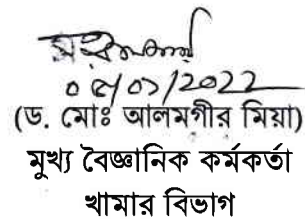 ০৫/০১/2022
(ড. মোঃ আলমগীর মিয়া)
মুখ্য বৈজ্ঞানিক কর্মকর্তা
খামার বিভাগ